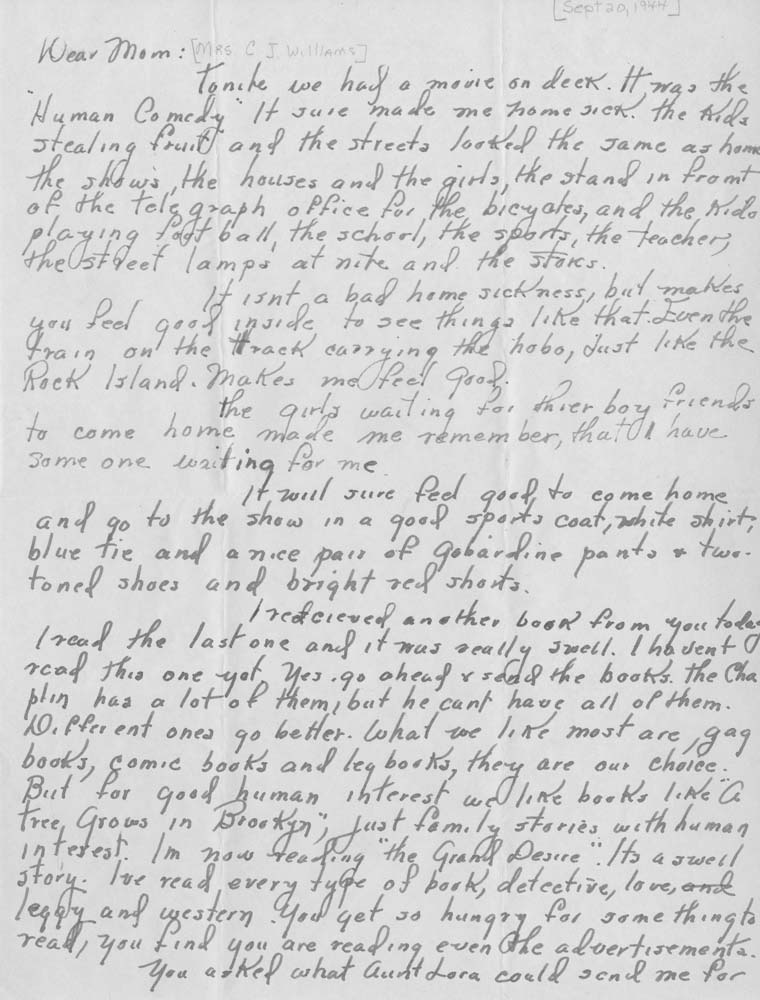 [Sept 20, 1944]
Dear Mom: [MRS C J Williams]
Tonite we had a movie on deck. It was the
"Human Comedy" It sure made me home sick. the Kids
stealing fruit and the streets looked the same as home
the shows, the houses and the girls, the stand in front
of the telegraph office for the bicycles, and the Kids
playing foot ball, the school, the sports, the teacher,
the street lamps at nite and the stores.
It isnt a bad home sickness, but makes
you feel good inside to see things like that. Even the
train on the track carrying the hobo, Just like the
Rock Island. Makes me feel Good.
the girls waiting for thier boy friends
to come home made me remember, that I have
some one waiting for me.
It will sure feel good, to come home
and go to the show in a good sports coat, white shirt,
blue tie and a nice pair of Gabardine pants & two-
toned shoes and bright red shorts.
I recieved another book from you today
I read the last one and it was really swell. I havent
read this one yet. Yes. go ahead & send the books. the Cha
plin has a lot of them, but he cant have all of them.
Different ones go better. What we like most are, gag
books, comic books and leg books, they are our choice.
But for good human interest we like books like "A
tree Grows in Brooklyn", Just family stories with human
interest. Im now reading "the Grand Desire". Its a swell
story. Ive read every type of book, detective, love, and
leggy and western. You get so hungry for something to
read, you find you are reading even the advertisements.
You asked what Aunt Lora could send me for